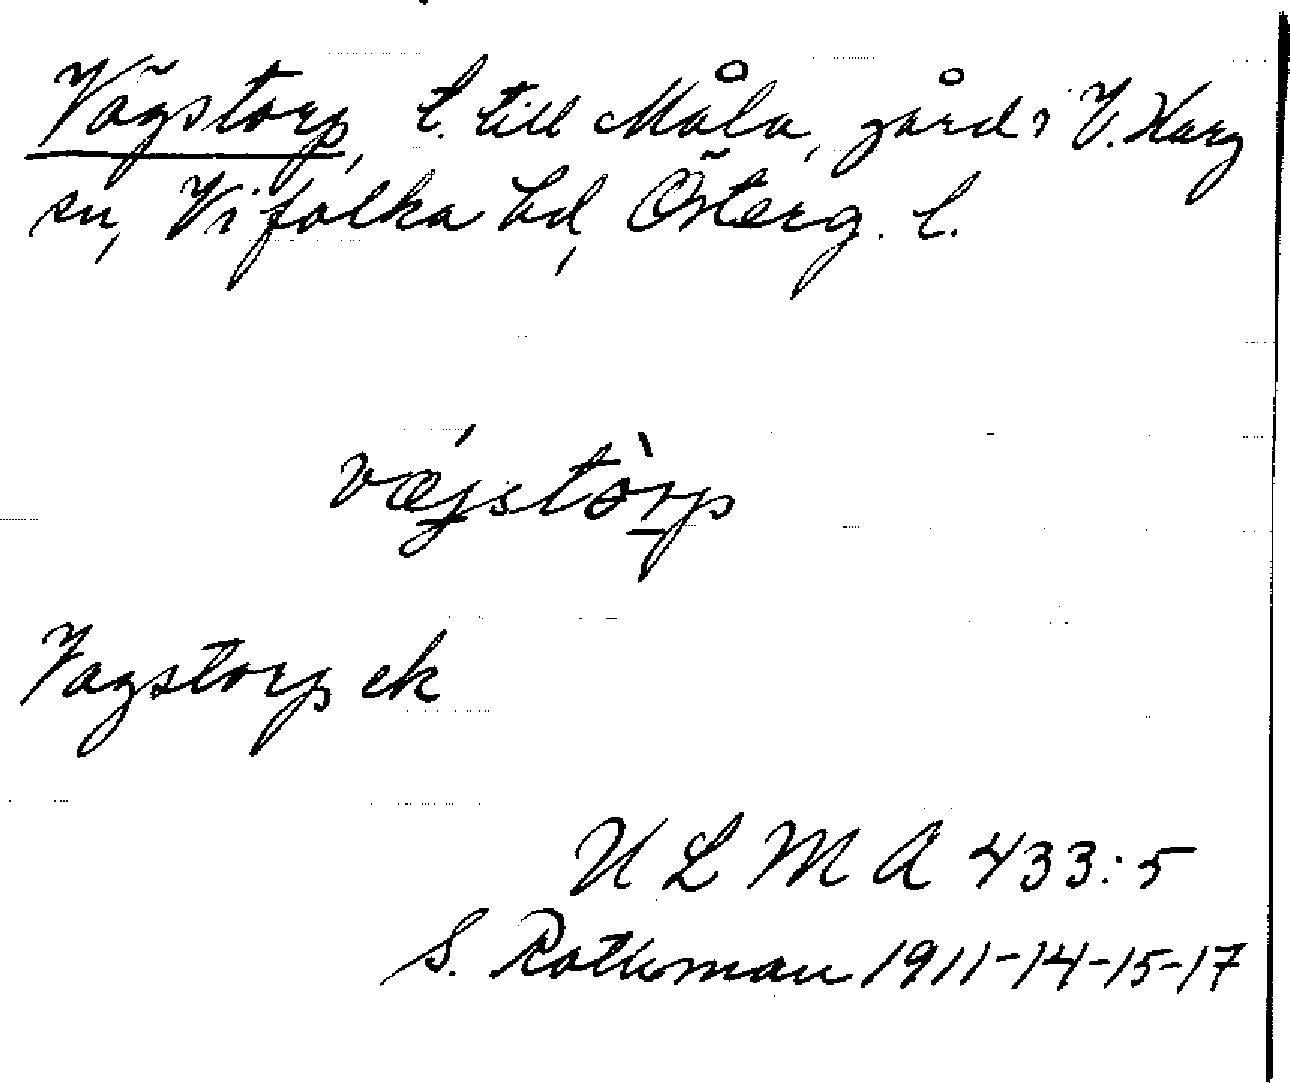 Vägstorp, t. till Måla, gård i V. Harg
sn, Vifolka hd, Österg. l.
væjstòrp
Vagstorp ek
ULMA 433:5
S. Rothman 1911-14-15-17